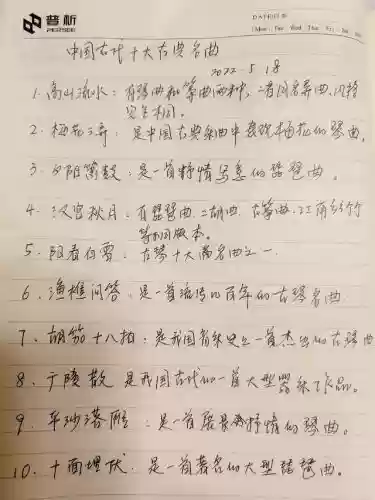 普析
PERSEE
DATE
Mon Tue Wed Thu Fri Sat Sun
中国古代十大古典名曲
2022.5.18
1. 高山流水：有琴曲和筝曲两种，二者同名异曲，风格
完全不同。
2. 梅花三弄：是中国古典乐曲中表现梅花的琴曲。
3. 夕阳箫鼓：是一首抒情写意的琵琶曲。
4. 汉宫秋月：有琵琶曲、二胡曲、古筝曲、江南丝竹
等不同版本。
5. 阳春白雪：古琴十大名曲之一
6. 渔樵问答：是一首流传几百年的古琴名曲
7. 胡笳十八拍：是我国音乐史上一首杰出的古琴曲
8. 广陵散 是我国古代的一首大型器乐作品。
9. 平沙落雁：是一首展景抒情的琴曲。
10. 十面埋伏：是一首著名的大型琵琶曲。